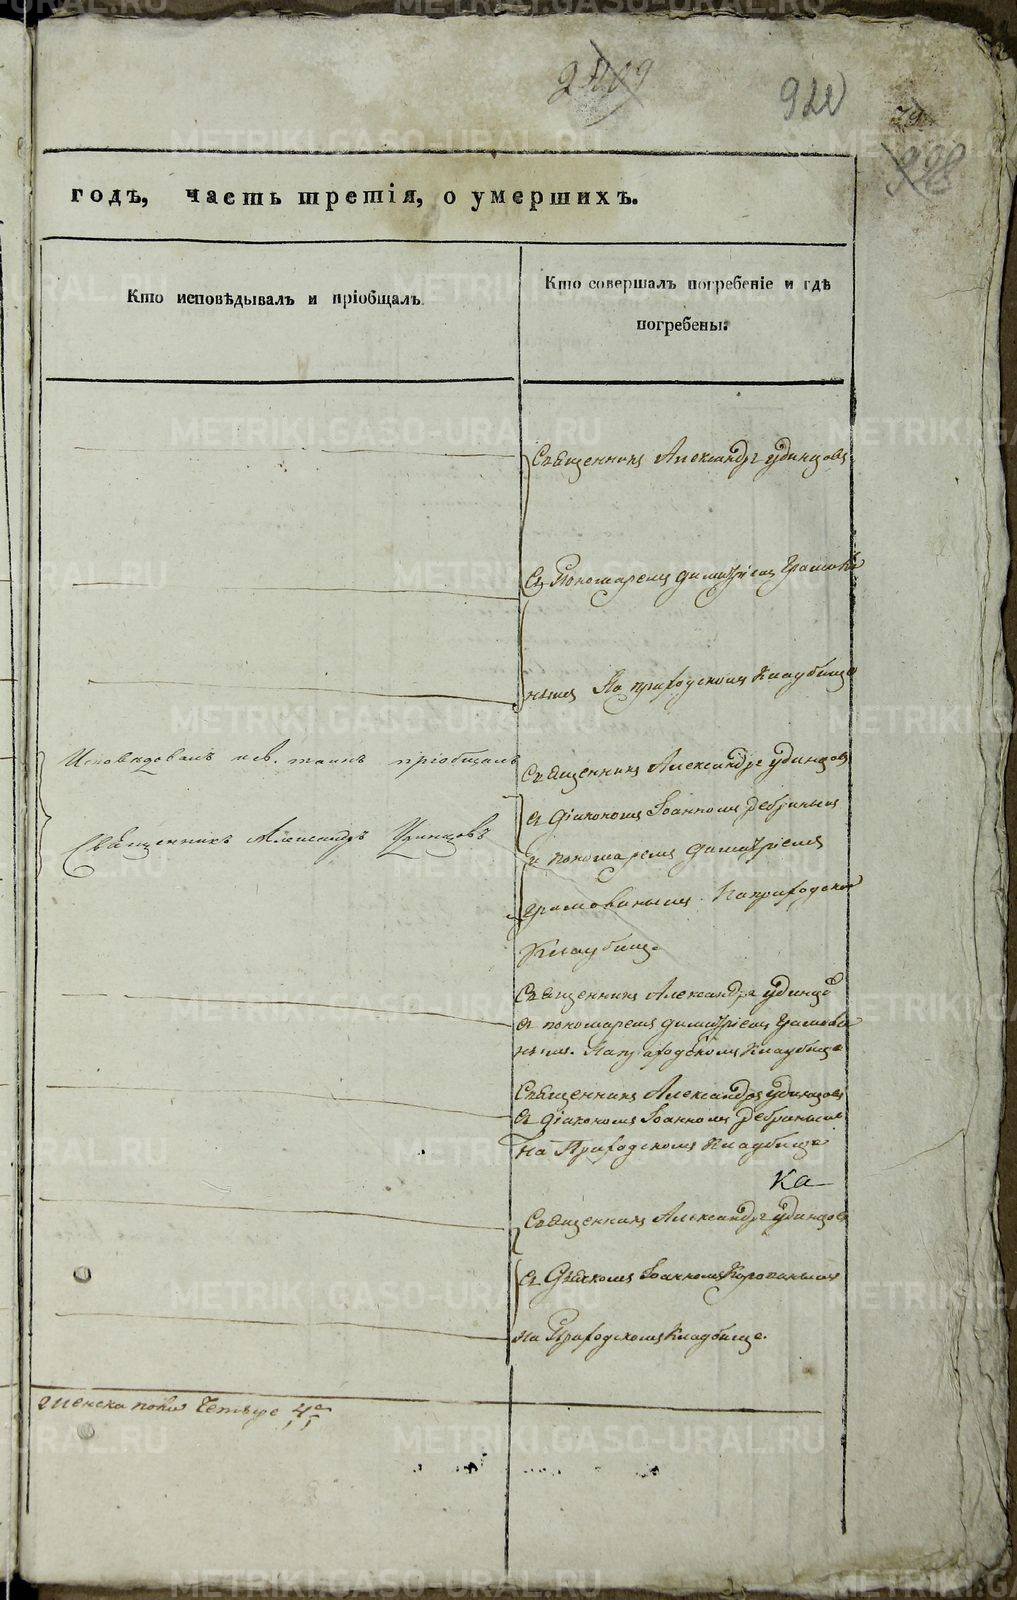 920
годъ, часть третія, о умершихъ.
Кто исповѣдывалъ и пріобщалъ
Кто совершалъ погребеніе и гдѣ
погребены.
Священникъ Александръ Удинцовъ
Съ Пономаремъ Димитріемъ Грамови
нымъ На приходскомъ Кладбище
Исповѣдовалъ и св. таинъ пріобщалъ
Священникъ Александръ Удинцовъ
Священникъ Александръ Удинцовъ
съ Діакономъ Іоанномъ Дебринымъ
и пономаремъ Димитріемъ
Грамовинымъ. На приходскомъ
Кладбище
Священникъ Александръ Удинцовъ
съ пономаремъ Димитріемъ Грамови
нымъ. На приходскомъ Кладбище
Священникъ Александръ Удинцовъ
съ діакономъ Іоанномъ Дебринымъ
На Приходскомъ Кладбище
Ка
Священникъ Александръ Удинцовъ
съ Іоанномъ
на Приходскомъ Кладбище.
женска пола Четыре 4
METRIKI.GASO-URAL.RU